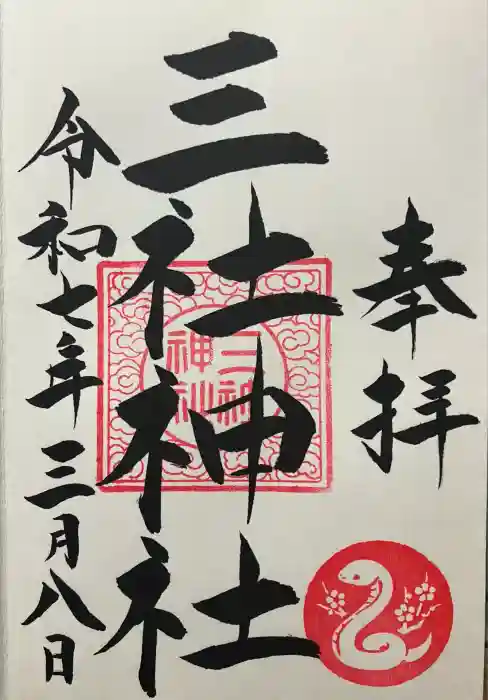 奉拝
三社神社
三社神社
令和七年三月八日